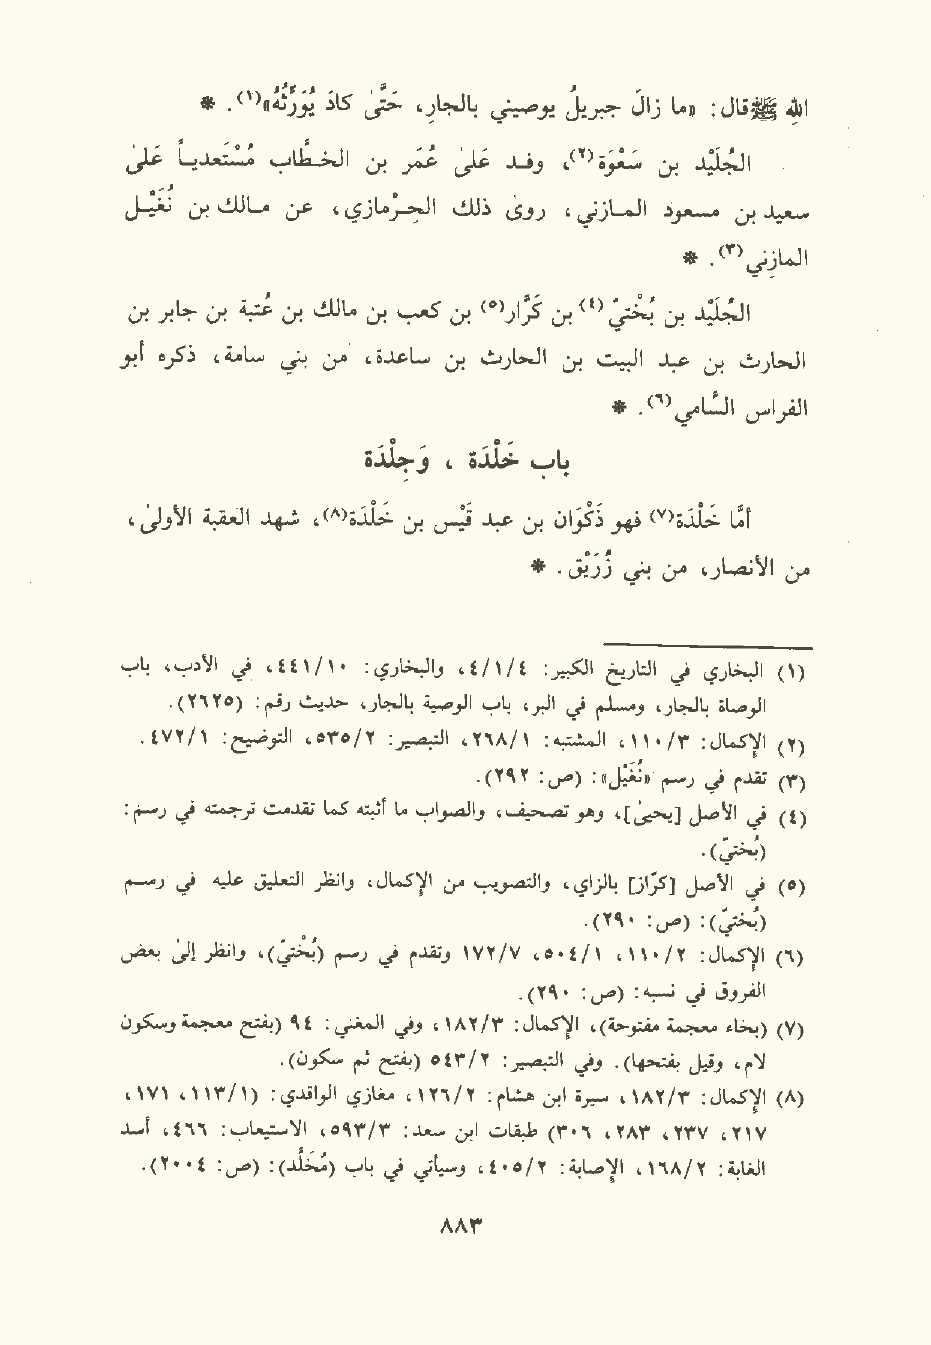 الله ﷺ قال: «ما زالَ جبريلُ يوصيني بالجارِ، حَتَّىٰ كادَ يُوَرِّثُهُ»(١). *
الجُلَيْد بن سَعْوَة(٢)، وفد علىٰ عُمَر بن الخطاب مُسْتَعدياً علىٰ
سعيد بن مسعود المازني، روىٰ ذلك الحِرْمازي، عن مالك بن نُغَيْل
المازِني(٣). *
الجُلَيْد بن بُخْتيّ(٤) بن كَرَّار(٥) بن كعب بن مالك بن عُتبة بن جابر بن
الحارث بن عبد البيت بن الحارث بن ساعدة، من بني سامة، ذكره أبو
الفراس السَّامي(٦). *
باب خَلْدَة ، وَجِلْدَة
أمَّا خَلْدَة(٧) فهو ذَكْوَان بن عبد قَيْس بن خَلْدَة(٨)، شهد العقبة الأولىٰ،
من الأنصار، من بني زُرَيْق. *
(١) البخاري في التاريخ الكبير: ٤/١/٤، والبخاري: ٤٤١/١٠، في الأدب، باب
الوصاة بالجار، ومسلم في البر، باب الوصية بالجار، حديث رقم: (٢٦٢٥).
(٢) الإكمال: ١١٠/٣، المشتبه: ٢٦٨/١، التبصير: ٥٣٥/٢، التوضيح: ٤٧٢/١.
(٣) تقدم في رسم «نُغَيْل»: (ص: ٢٩٢).
(٤) في الأصل [يحيىٰ]، وهو تصحيف، والصواب ما أثبته كما تقدمت ترجمته في رسم:
(بُختيّ).
(٥) في الأصل [كرَّاز] بالزاي، والتصويب من الإكمال، وانظر التعليق عليه في رسم
(بُختيّ): (ص: ٢٩٠).
(٦) الإكمال: ١١٠/٢، ٥٠٤/١، ١٧٢/٧ وتقدم في رسم (بُخْتيّ)، وانظر إلىٰ بعض
الفروق في نسبه: (ص: ٢٩٠).
(٧) (بخاء معجمة مفتوحة)، الإكمال: ١٨٢/٣، وفي المغني: ٩٤ (بفتح معجمة وسكون
لام، وقيل بفتحها). وفي التبصير: ٥٤٣/٢ (بفتح ثم سكون).
(٨) الإكمال: ١٨٢/٣، سيرة ابن هشام: ١٢٦/٢، مغازي الواقدي: (١١٣/١، ١٧١،
٢١٧، ٢٣٧، ٢٨٣، ٣٠٦) طبقات ابن سعد: ٥٩٣/٣، الاستيعاب: ٤٦٦، أسد
الغابة: ١٦٨/٢، الإصابة: ٤٠٥/٢، وسيأتي في باب (مُخَلَّد): (ص: ٢٠٠٤).
٨٨٣